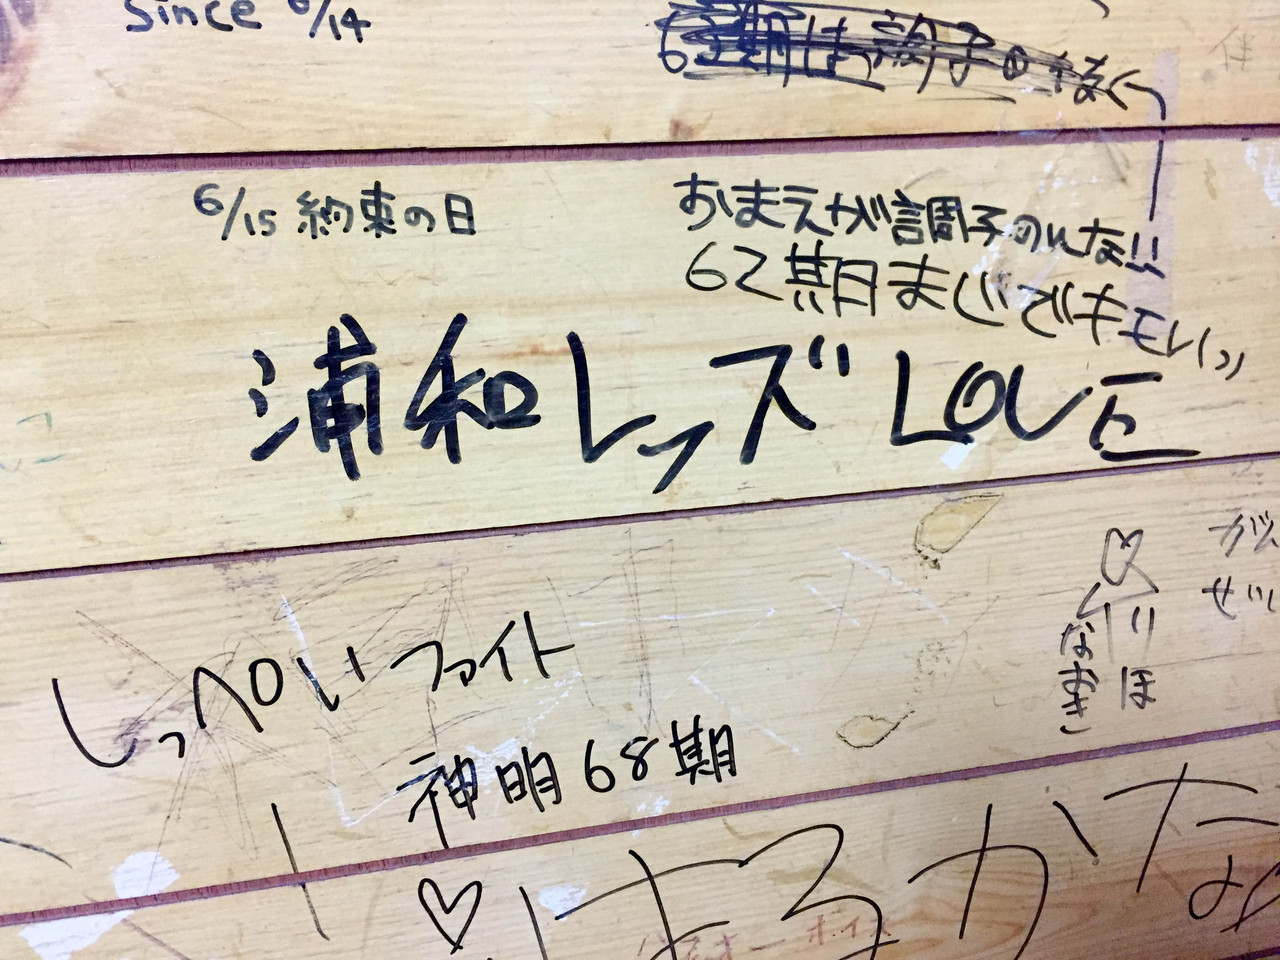 since 6/14
63期は調子の
6/15 約束の日
おまえが調子のんな!!
62期まじでキモい(ツ)
浦和レッズ LOVE
しっぺい ファイト
神明 68期
りほ
なおき
がん
ぜい
♡はるかな